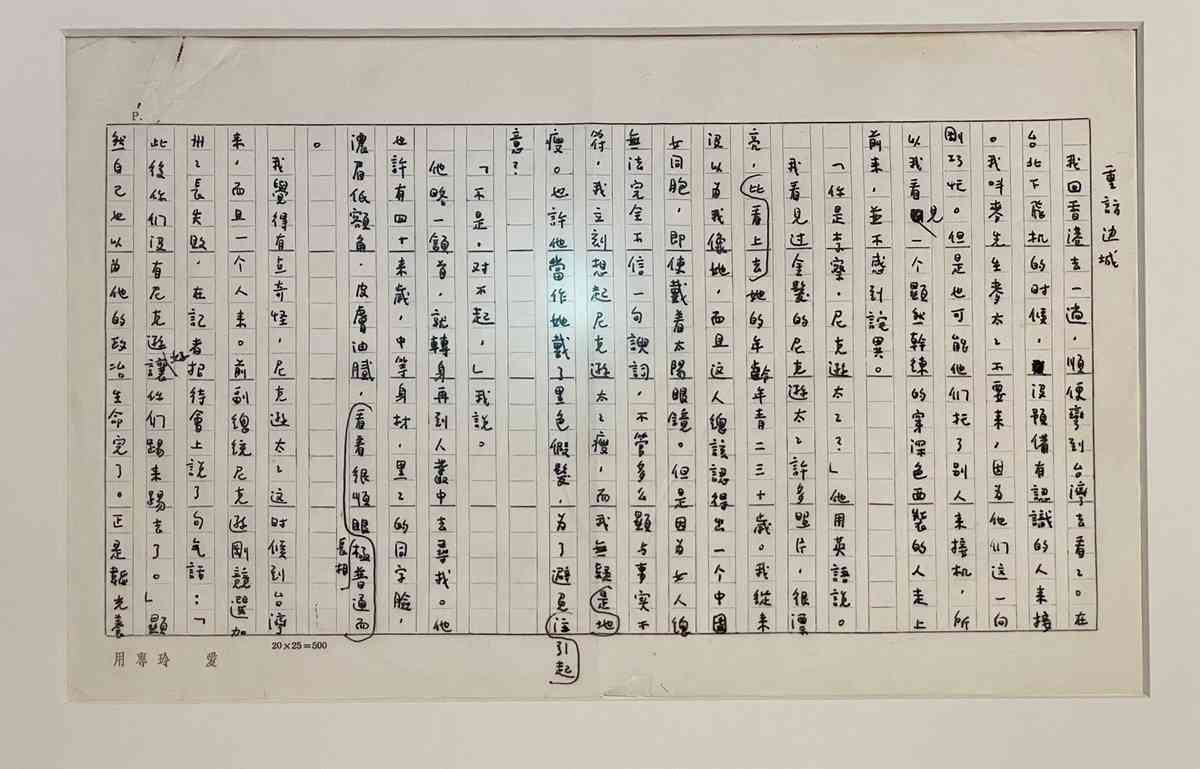 重訪边城
我回香港去一趟，順便彎到台灣去看之。在
台北下飛机的时候，沒預備有認識的人来接
。我叫麥先生麥太之不要来，因為他們这一向
剛巧忙。但是也可能他們托了別人来接机，所
以我看見一个顯然幹練的穿深色西裝的人走上
前来，並不感到詫異。
「你是李察．尼克遜太之？」他用英語說。
我看見过金髮的尼克遜太之許多照片，很漂
亮，比看上去她的年齡年青二三十歲。我從来
沒以為我像她，而且这人總該認得出一个中國
女同胞，即使戴着太陽眼鏡。但是因為女人總
無法完全不信一句諛詞，不管多么顯与事实不
符，我立刻想起尼克遜太之瘦，而我無疑是地
瘦。也許他當作她戴了黑色假髮，为了避免注引起
意？
「不是，对不起，」我說。
他略一頷首，就轉身再到人叢中去尋找。他
也許有四十来歲，中等身材，黑之的同字臉，
濃眉低額角，皮膚油膩，看着很恒眼極普通而長相
。
我覺得有点奇怪，尼克遜太之这时候到台灣
来，而且一个人来。前副總統尼克遜剛競選加
州之長失敗，在記者招待會上說了句气話：「
此後你們沒有尼克遜好讓你們踢来踢去了。」顯
然自己也以為他的政治生命完了。正是韜光養
P.
20×25=500
愛玲專用